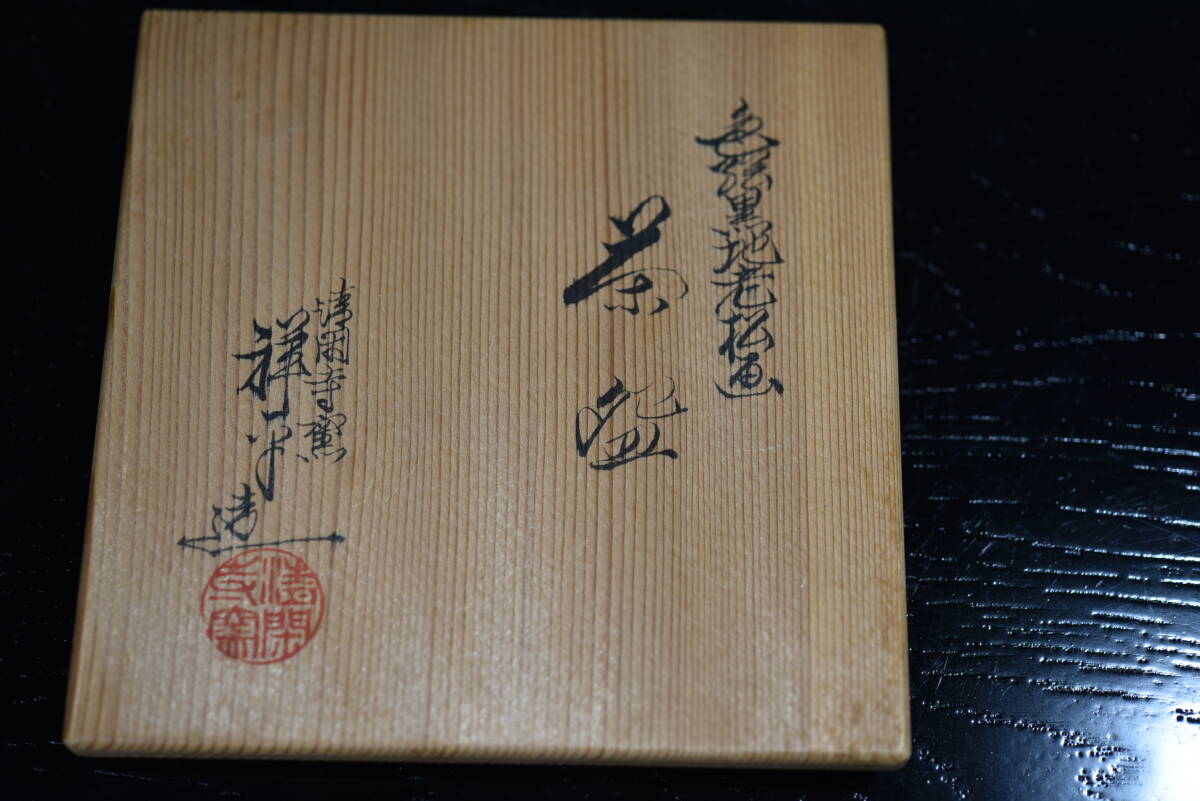 色絵黒地老松画
茶盌
清閑寺窯
祥平造
清閑寺窯